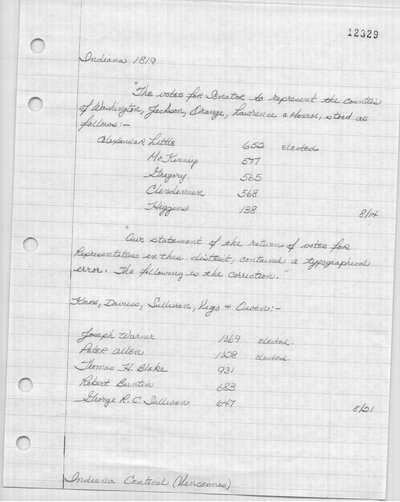 12329
Indiana 1819
"The votes for Senator to represent the counties
of Washington, Jackson, Orange, Lawrence & Monroe, stood as
follows:—
Alexander Little 652 elected
McKinney 577
Gregory 565
Clendennen 568
Higgins 138 8/14
"Our statement of the return of votes for
Representatives in this district, contained a typographical
error. The following is the correction."
Knox, Daviess, Sullivan, Vigo & Owen:—
Joseph Warner 1069 elected.
Peter Allen 1028 elected.
Thomas H. Blake 931
Robert Buntin 683
George R. C. Sullivan 647 8/21
Indiana Centinel (Vincennes)